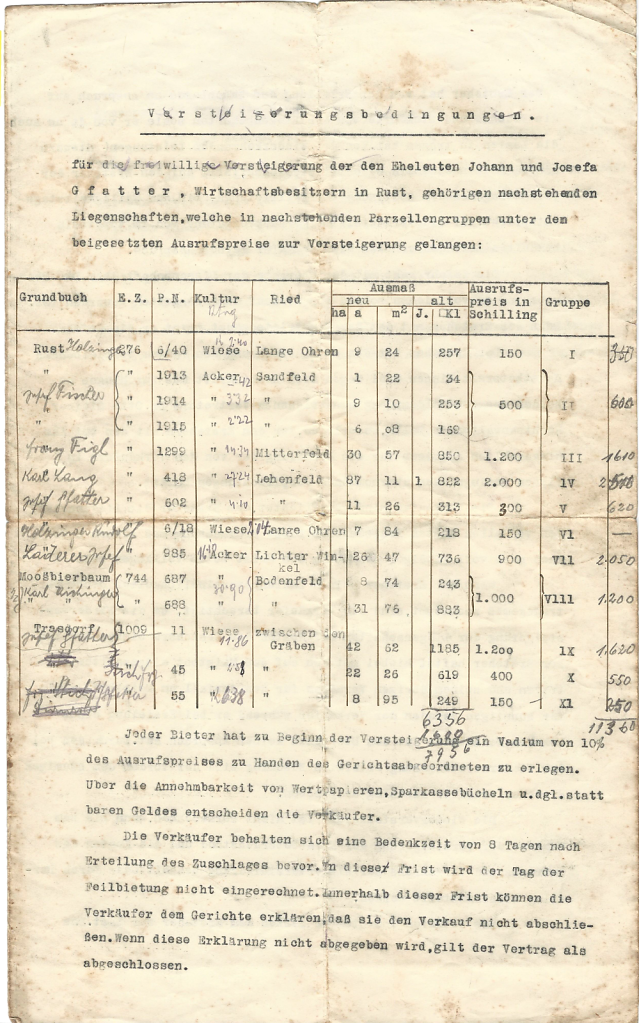 Versteigerungsbedingungen.
für die freiwillige Versteigerung der den Eheleuten Johann und Josefa
Gfatter, Wirtschaftsbesitzern in Rust, gehörigen nachstehenden
Liegenschaften,welche in nachstehenden Parzellengruppen unter dem
beigesetzten Ausrufspreise zur Versteigerung gelangen:
Grundbuch E.Z. P.N. Kultur Ried Ausmaß Ausrufs-preis in Schilling Gruppe
neu alt
ha a m² J. □Kl
Rust Holzinger 276 6/40 Wiese Lange Ohren 9 24 257 150 I
" " 1913 Acker Sandfeld 1 22 34
Josef Fischer " 1914 " 3'32 " 9 10 253 500 II 600
" " 1915 " 2'22 6 08 169
Franz Figl " 1299 " Mitterfeld 30 57 850 1.200 III 1610
Karl Lang " 418 " Lehenfeld 87 11 1 822 2.000 IV
Josef Gfatter " 602 " 4'10 " 11 26 313 300 V 620
Holzinger Rudolf 6/18 Wiese Lange Ohren 7 84 218 150 VI —
Laderer Josef " 985 Acker Lichter Win-kel 26 47 736 900 VII 2.050
Moosbierbaum 744 687 " Bodenfeld 8 74 243
Karl " 688 30·90 " 31 76 883 1.000 VIII 1.200
Trasdorf 1009 11 Wiese zwischen den Gräben 42 62 1185 1.200 IX 1.620
Josef Gfatter 11·86
45 " " 22 26 619 400 X 550
55 " " 8 95 249 150 XI 250
6356 11360
7956
Jeder Bieter hat zu Beginn der Versteigerung ein Vadium von 10%
des Ausrufspreises zu Handen des Gerichtsabgeordneten zu erlegen.
Uber die Annehmbarkeit von Wertpapieren,Sparkassebücheln u.dgl.statt
baren Geldes entscheiden die Verkäufer.
Die Verkäufer behalten sich eine Bedenkzeit von 8 Tagen nach
Erteilung des Zuschlages bevor.In dieser Frist wird der Tag der
Feilbietung nicht eingerechnet.Innerhalb dieser Frist können die
Verkäufer dem Gerichte erklären,daß sie den Verkauf nicht abschlie-
ßen.Wenn diese Erklärung nicht abgegeben wird,gilt der Vertrag als
abgeschlossen.